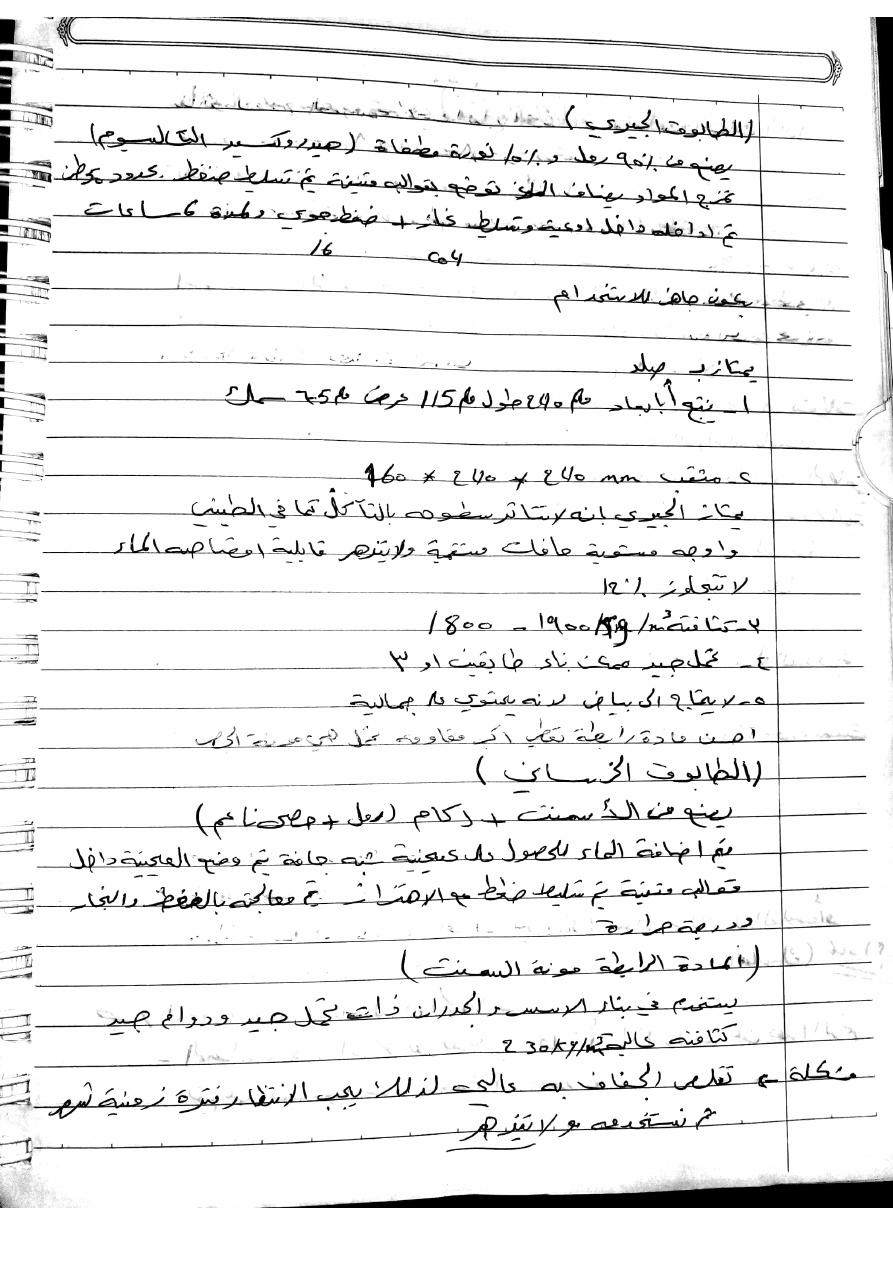 (الطابوق الجيري)
يصنع من 90% رمل و 10% نورة مطفاة (هيدروكسيد الكالسيوم)
تمزج المواد يضاف الماء توضع بقوالب متينة ثم تسليط ضغط بحدود
ثم ادخله داخل اوعية وتسليط بخار + ضغط جوي ولمدة ساعات
16
يكون جاهز للاستخدام
يمتاز ب صلد
1- ينتج أبابعاد 240 ملم طول 115 ملم عرض 65 ملم سمك
2- مثقب 240 mm * 240 * 160
يمتاز الجيري بانه لا تتاثر سطوحه بالتآكل كما في الطيني
واوجه مستوية حافات مستقيمة ولا يتزهر قابلية امتصاصه الماء
لا تتجاوز 12%
3- كثافته 1800 - 1900 kg/m³
4- تحمل جيد ممكن بناء طابقين او 3
5- لا يحتاج الى بياض لانه يحتوي على جمالية
احسن مادة رابطة تعطي اكبر مقاومه تحمل هي مونة الجص
(الطابوق الخرساني)
يصنع من الأسمنت + ركام (رمل + حصى ناعم)
يتم اضافة الماء للحصول على عجينة شبه جافة ثم وضع العجينة داخل
قوالب متينة ثم تسليط ضغط مع الاهتزاز ثم معالجته بالضغط والبخار
ودرجة حرارة
(المادة الرابطة مونة السمنت)
يستخدم في بناء الاسس والجدران ذات تحمل جيد ودوام جيد
كثافته عالية 230kg/m³
مشكلة تقلص الجفاف به عالي لذلك يجب الانتظار فترة زمنية شهر
ثم نستخدمه ولا يتزهر